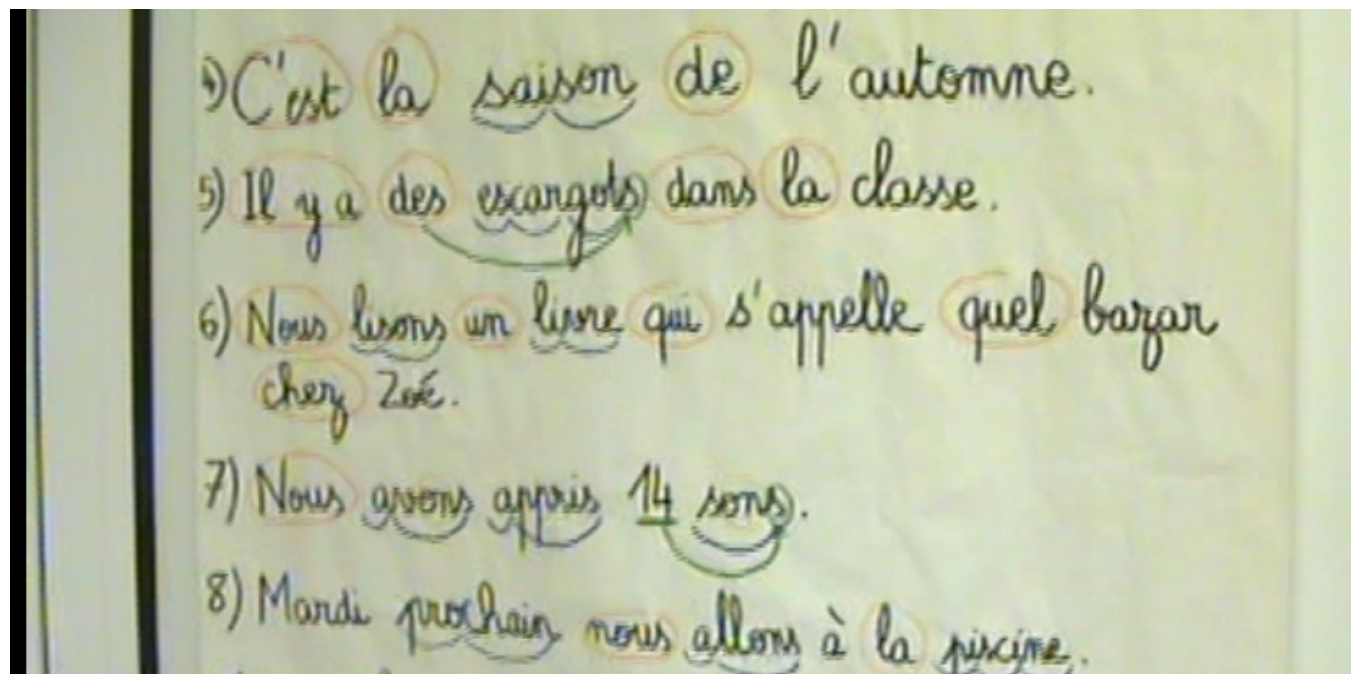 4) C'est la saison de l'automne.
5) Il y a des escargots dans la classe.
6) Nous lisons un livre qui s'appelle quel bazar
chez Zoé.
7) Nous avons appris 14 sons.
8) Mardi prochain nous allons à la piscine.